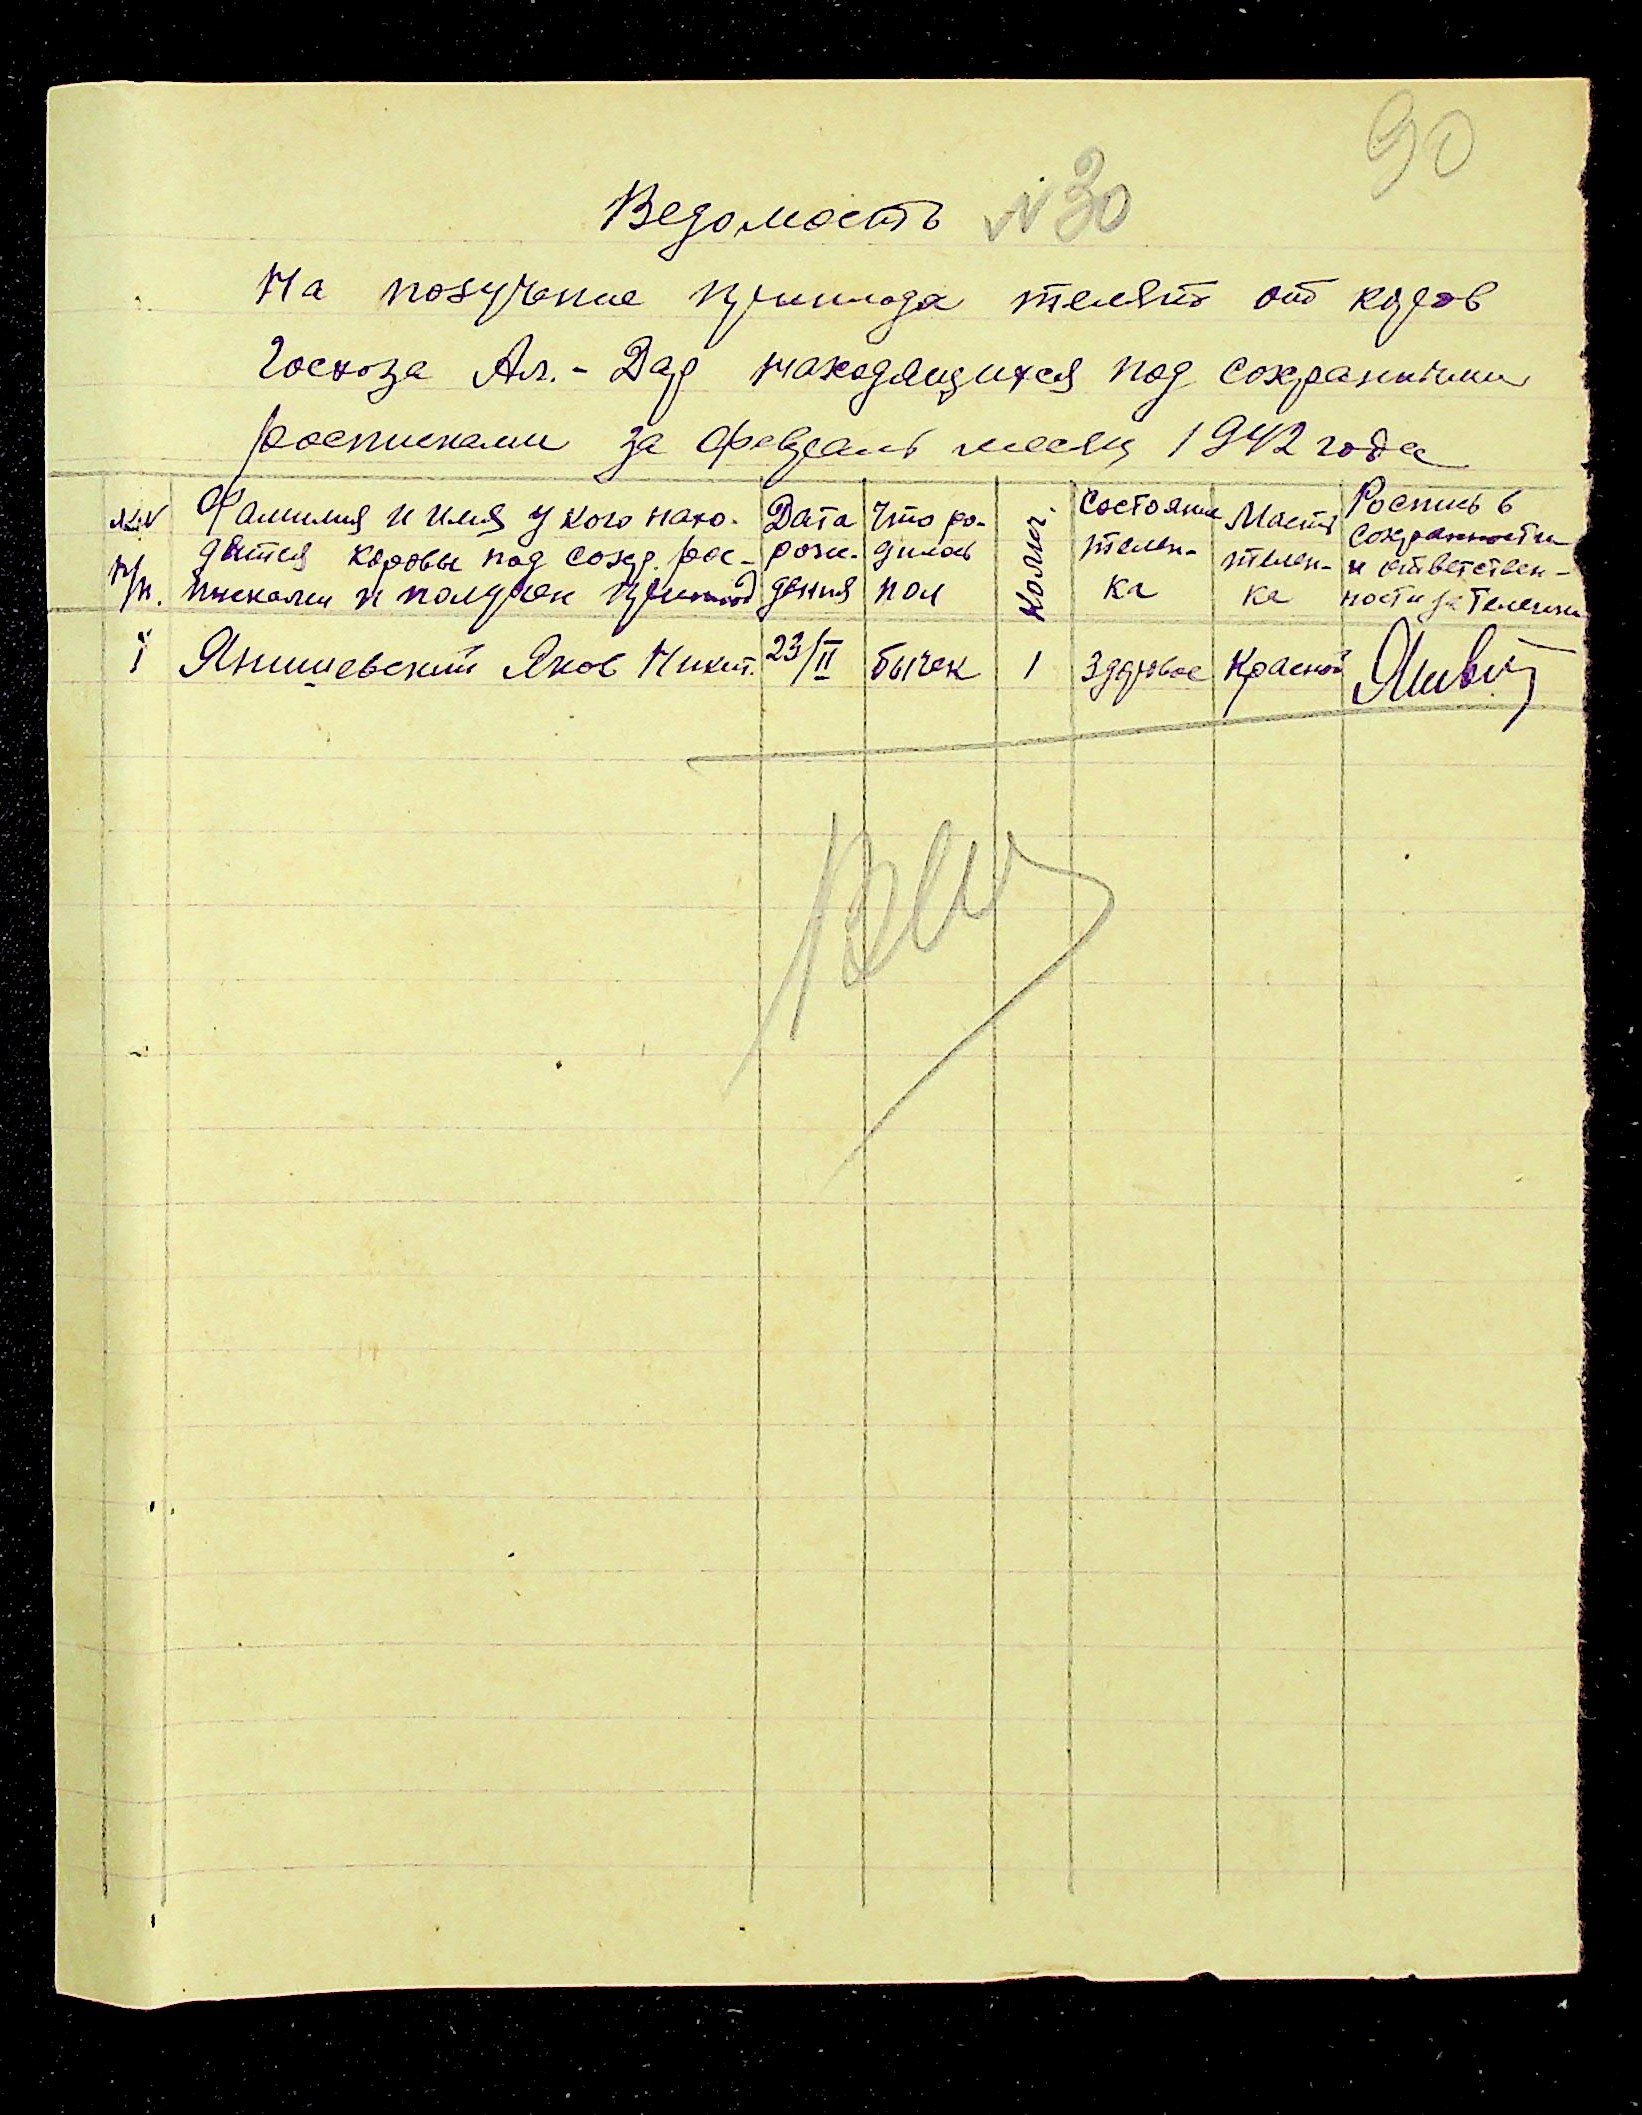 90
Ведомость №30
На получение приплода телят от коров
Госхоза Ал.-Дар находящихся под сохранными
росписками за февраль месяц 1942 года
№№ п/п.
Фамилия и имя у кого нахо-
дятся коровы под сохр. рос-
писками и получен приплод
Дата
рож-
дения
Что ро-
дилось
пол
Колич.
Состояние
телен-
ка
Масть
телен-
ка
Роспись в
сохранности
и ответствен-
ности за теленка
1 Янишевский Яков Никит. 23/II бычек 1 здоровое Красной